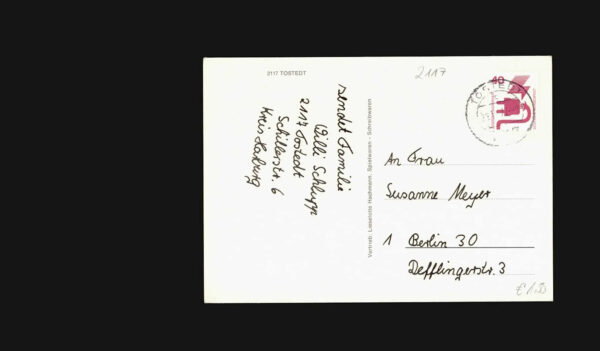 2117 TOSTEDT
2117
40
TOSTEDT
sendet Familie
Willi Schlupp
2117 Tostedt
Schillerstr. 6
Kreis Harburg
Vertrieb: Lieselotte Hachmann, Spielwaren - Schreibwaren
An Frau
Susanne Meyer
1 Berlin 30
Defflingerstr. 3